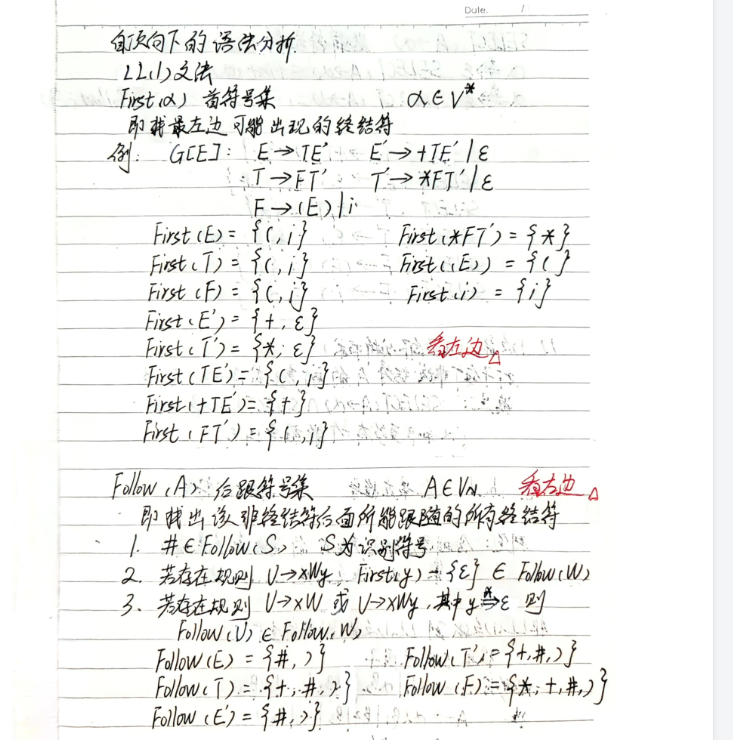 Date. /
自顶向下的语法分析.
LL(1)文法
First(α) 首符号集 α∈V*
即找最左边可能出现的终结符
例: G[E]: E→TE' E'→+TE'|ε
T→FT' T'→*FT'|ε
F→(E)|i
First(E)={(,i} First(*FT')={*}
First(T)={(,i} First((E))={(}
First(F)={(,i} First(i)={i}
First(E')={+,ε}
First(T')={*,ε} 看左边△
First(TE')={(,i}
First(+TE')={+}
First(FT')={(,i}
Follow(A) 后跟符号集 A∈VN. 看右边△
即找出该非终结符后面所能跟随的所有终结符
1. #∈Follow(S), S为识别符号
2. 若存在规则 U→xWy, First(y)-{ε}∈Follow(W)
3. 若存在规则 U→xW 或 U→xWy,其中y*⇒ε 则
Follow(U)∈Follow(W)
Follow(E)={#,)} Follow(T')={+,#,)}
Follow(T)={+,#,)} Follow(F)={*,+,#,)}
Follow(E')={#,)}